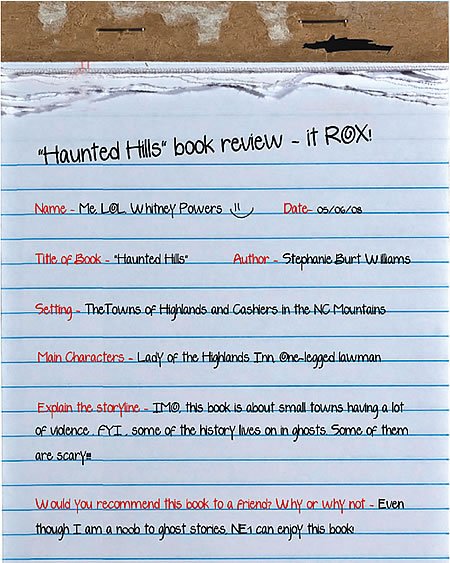 "Haunted Hills" book review - it ROX!
Name - Me, LOL, Whitney Powers Date- 05/06/08
Title of Book - "Haunted Hills" Author - Stephanie Burt Williams
Setting - The Towns of Highlands and Cashiers in the NC Mountains
Main Characters - Lady of the Highlands Inn, One-legged lawman
Explain the storyline - IMO, this book is about small towns having a lot
of violence . FYI , some of the history lives on in ghosts. Some of them
are scary!!!
Would you recommend this book to a friend? Why or why not - Even
though I am a noob to ghost stories, NE1 can enjoy this book!